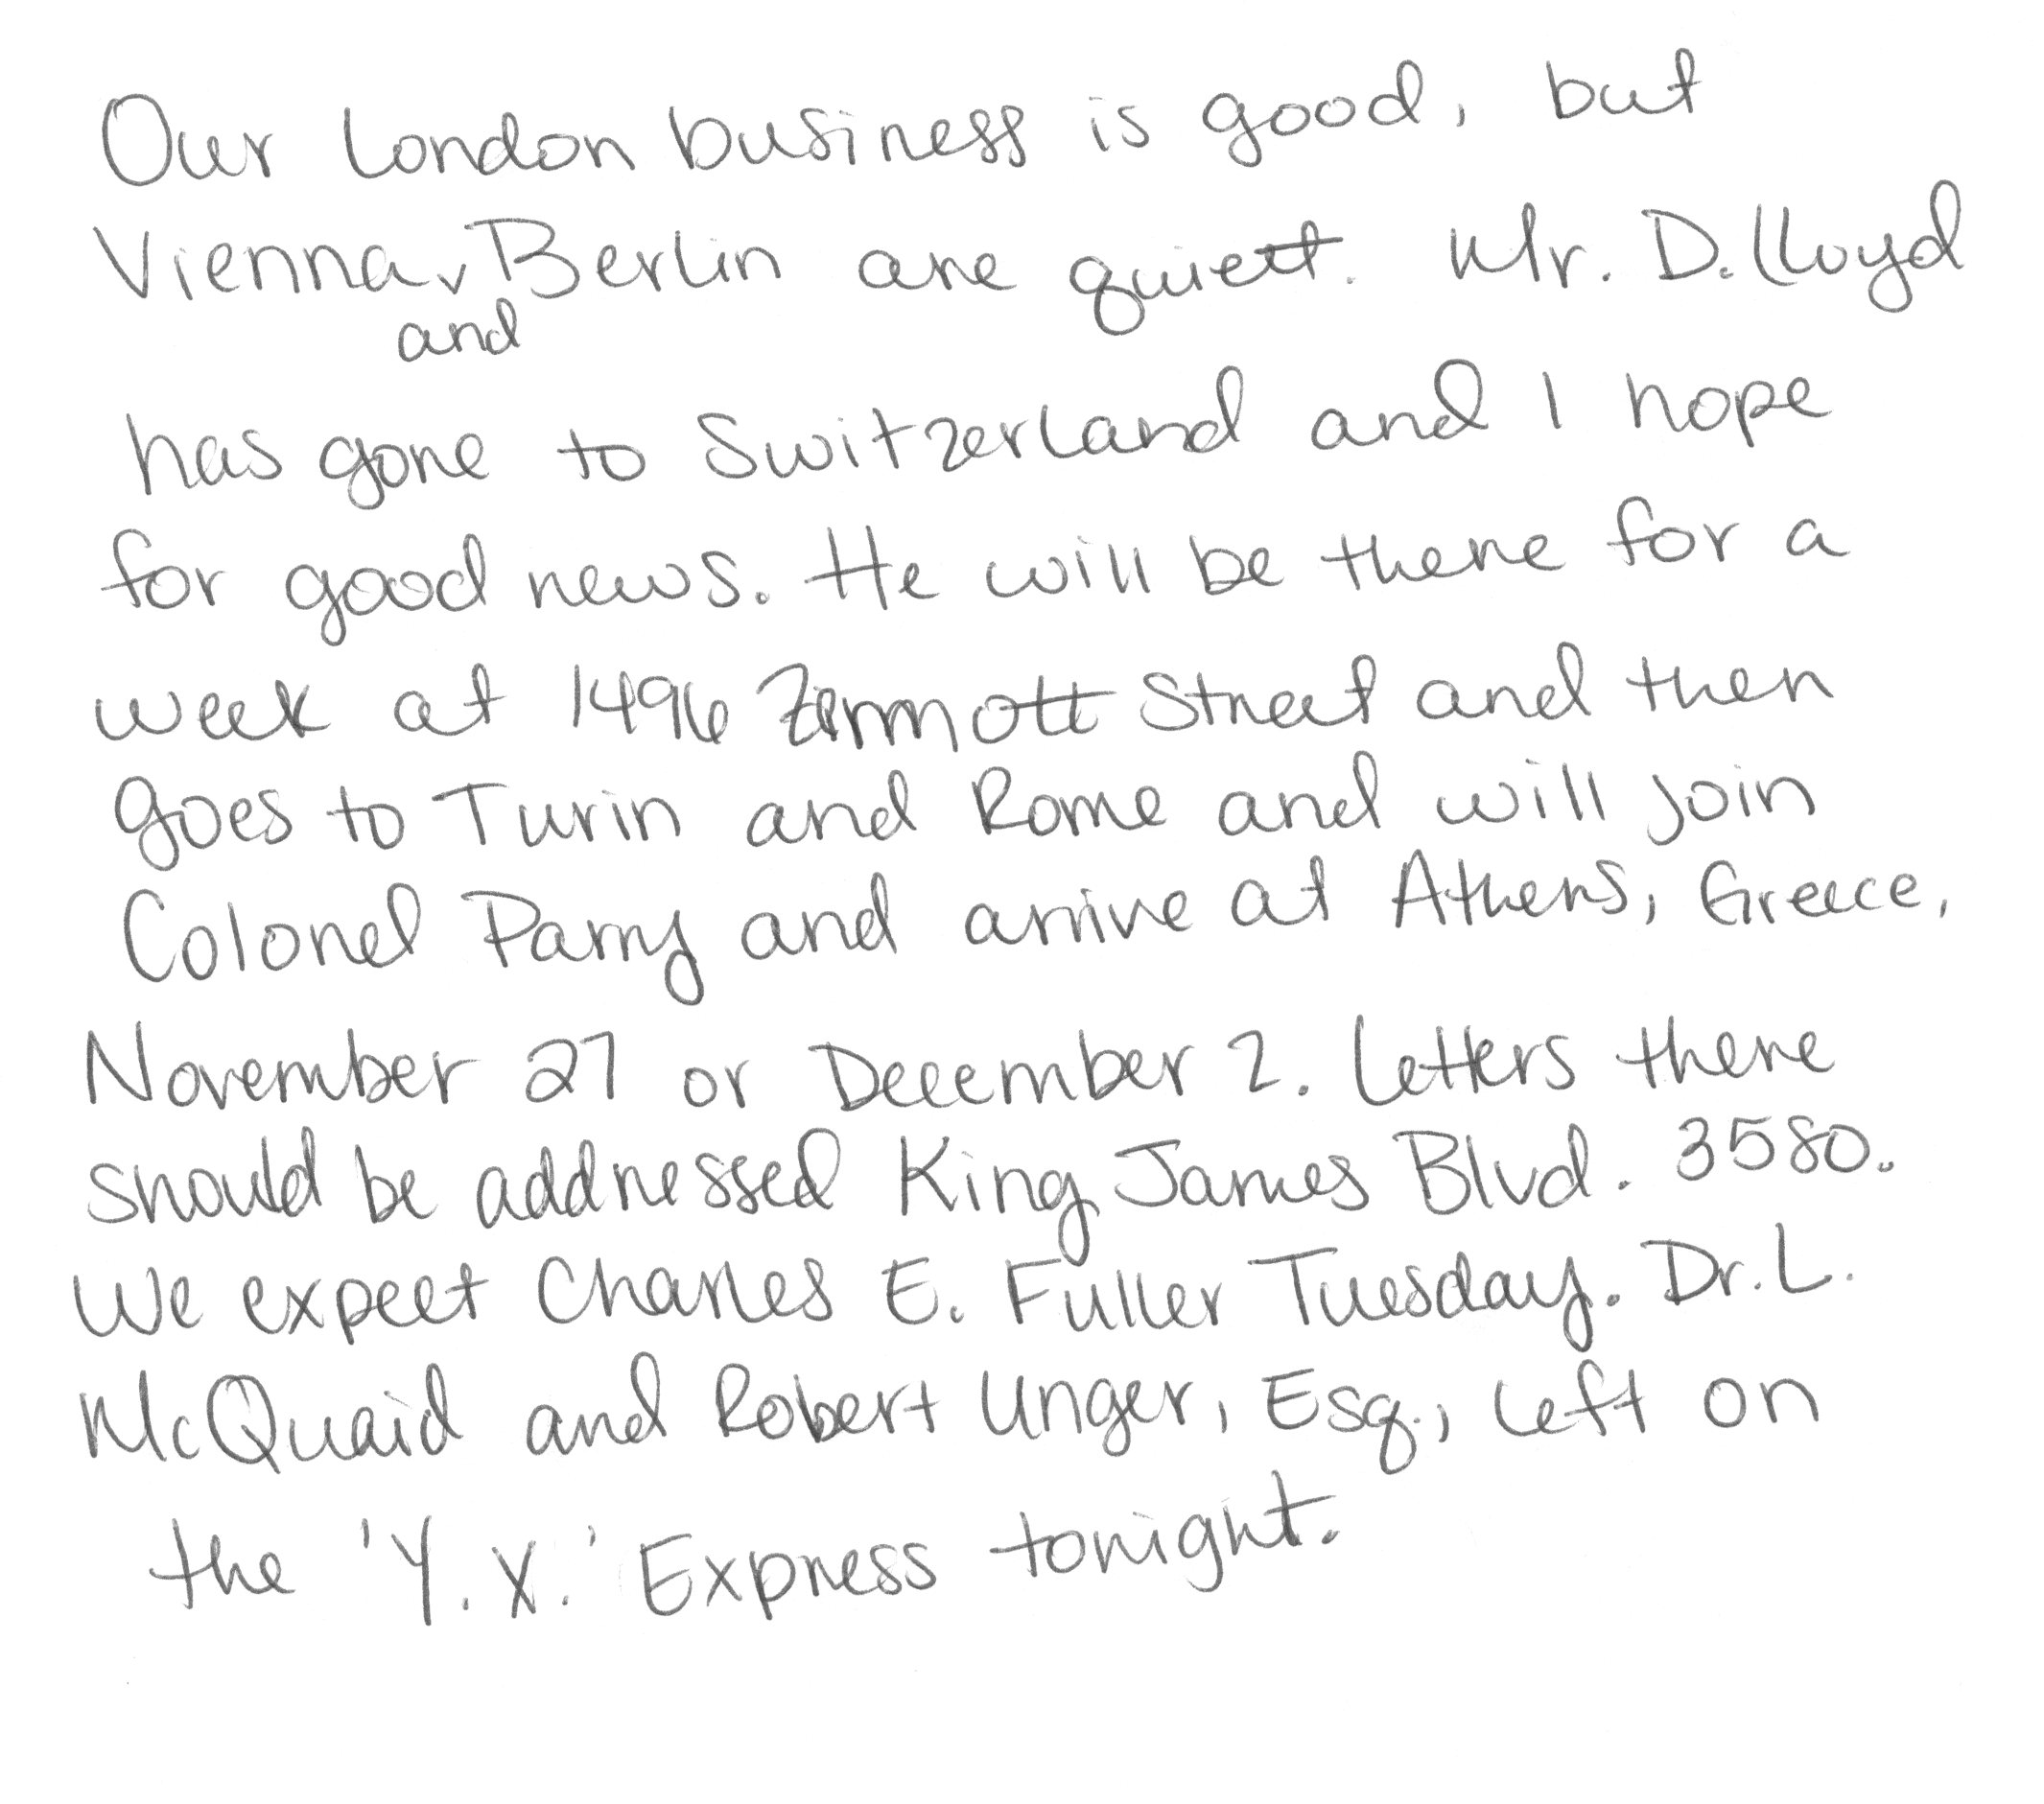 Our London business is good, but
Vienna and Berlin are quiett. Mr. D. Lloyd
has gone to Switzerland and I hope
for good news. He will be there for a
week at 1496 Zermott Street and then
goes to Turin and Rome and will join
Colonel Parry and arrive at Athens, Greece,
November 27 or December 2. Letters there
should be addressed King James Blvd. 3580.
We expect Charles E. Fuller Tuesday. Dr. L.
McQuaid and Robert Unger, Esq., left on
the 'Y.X.' Express tonight.